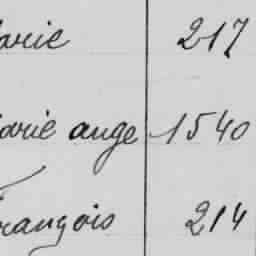 arie 217
arie ange 1540
rançois 214